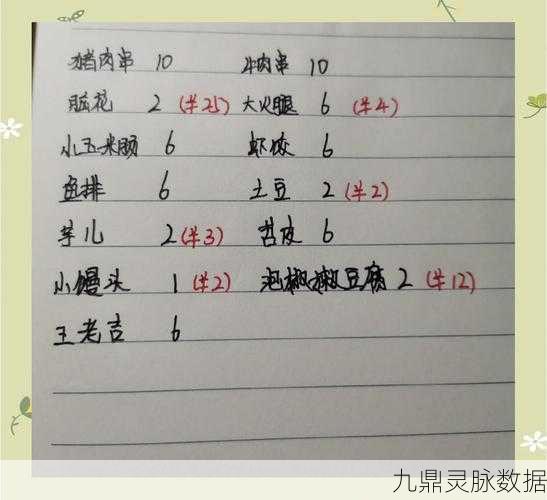 猪肉串 10 牛肉串 10
脑花 2 (半25) 大火腿 6 (半4)
小玉米肠 6 虾饺 6
鱼排 6 土豆 2 (半2)
芋儿 2 (半3) 苕皮 6
小馒头 1 (半2) 泡椒嫩豆腐 2 (半12)
王老吉 6
九鼎灵脉数据